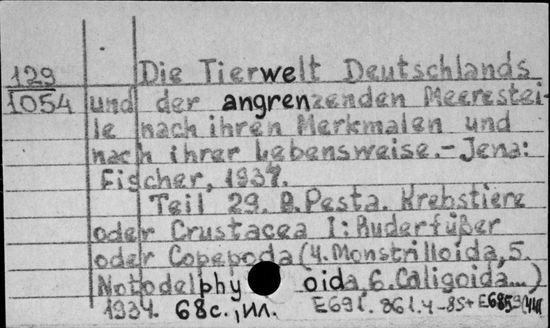 129 Die Tierwelt Deutschlands
1054 und der angrenzenden Meerestei-
le nach ihren Merkmalen und
nach ihrer Lebensweise.-Jena:
Fischer, 1937.
Teil 29. B.Pesta. Krebstiere
oder Crustacea I: Ruderfüßer
oder Copepoda (4.Monstrilloida, 5.
Notodelphyoida, 6.Caligoida...)
1934. 68с., ил. E691.861.4-85+E6859